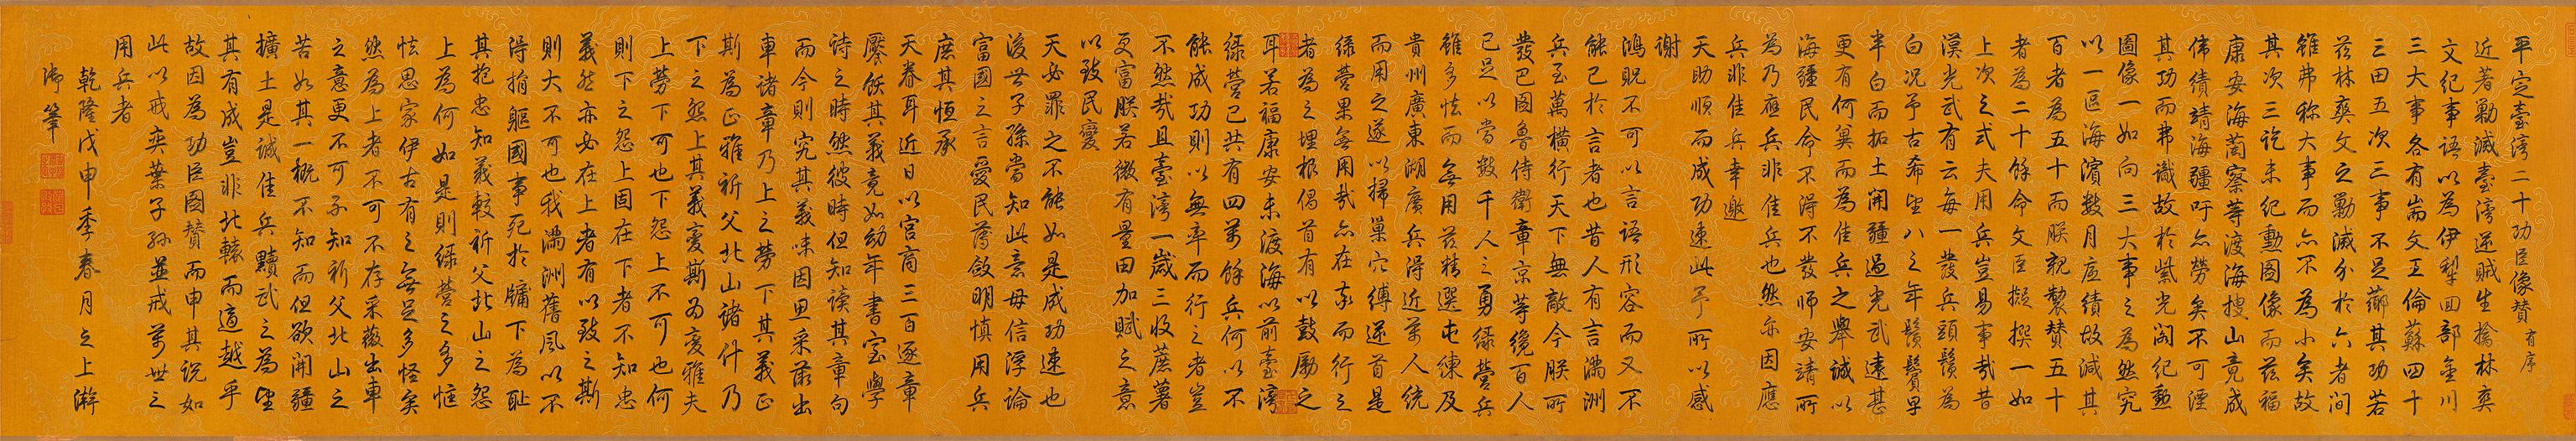 平定臺灣二十功臣像贊有序
近著勦滅臺灣逆賊生擒林爽
文紀事語以為伊犁回部金川
三大事各有耑文王倫蘇四十
三田五次三事不足薌其功若
茲林爽文之勦滅介於六者間
雖弗稱大事而亦不為小矣故
其次三訖未紀勳圖像而茲福
康安海蘭察等渡海搜山竟成
偉績靖海疆吁亦勞矣不可湮
其功而弗識故於紫光閣紀勳
圖像一如向三大事之為然究
以一區海濱數月底績故減其
百者為五十而朕親製贊五十
者為二十餘命文臣擬撰一如
上次之式夫用兵豈易事哉昔
漢光武有云每一發兵頭鬚為
白況予古希望八之年鬚鬢早
半白而拓土開疆過光武遠甚
更有何冀而為佳兵之舉誠以
海疆民命不得不發師安靖所
為乃應兵非佳兵也然亦因應
兵非佳兵幸邀
天助順而成功速此予所以感
謝
鴻貺不可以言語形容而又不
能已於言者也昔人有言滿洲
兵至萬橫行天下無敵今朕所
發巴圖魯侍衛章京等纔百人
已足以當數千人之勇綠營兵
雖多怯而無用茲精選屯練及
貴州廣東湖廣兵得近萬人統
而用之遂以掃巢穴縛逆首是
綠營果無用哉亦在夫行之
者為之埋根倡首有以鼓勵之
耳若福康安未渡海以前臺灣
綠營已共有四萬餘兵何以不
能成功則以無率而行之者豈
不然哉且臺灣一歲三收蔗薯
更富朕若微有量田加賦之意
以致民變
天必罪之不能如是成功速也
後世子孫當知此意毋信浮論
富國之言愛民薄斂明慎用兵
庶其恒承
天眷耳近日以宮商三百逐章
釐飫其義竟如幼年書室學
詩之時然彼時但知讀其章句
而今則究其義味因思采薇出
車諸章乃上之勞下其義正
斯為正雅祈父北山諸什乃
下之怨上其義變斯為變雅夫
上勞下可也下怨上不可也何
則下之怨上固在下者不知忠
義然亦必在上者有以致之斯
則大不可也我滿洲舊風以不
得捐軀國事死於牖下為恥
其抱忠知義較祈父北山之怨
上為何如是則綠營之多恇
怯思家伊古有之無足多怪矣
然為上者不可不存采薇出車
之意更不可不知祈父北山之
苦如其一概不知而但欲開疆
擴土是誠佳兵黷武之為望
其有成豈非北轅而適越乎
故因為功臣圖贊而申其說如
此以戒奕葉子孫並戒萬世之
用兵者
乾隆戊申季春月之上澣
御筆